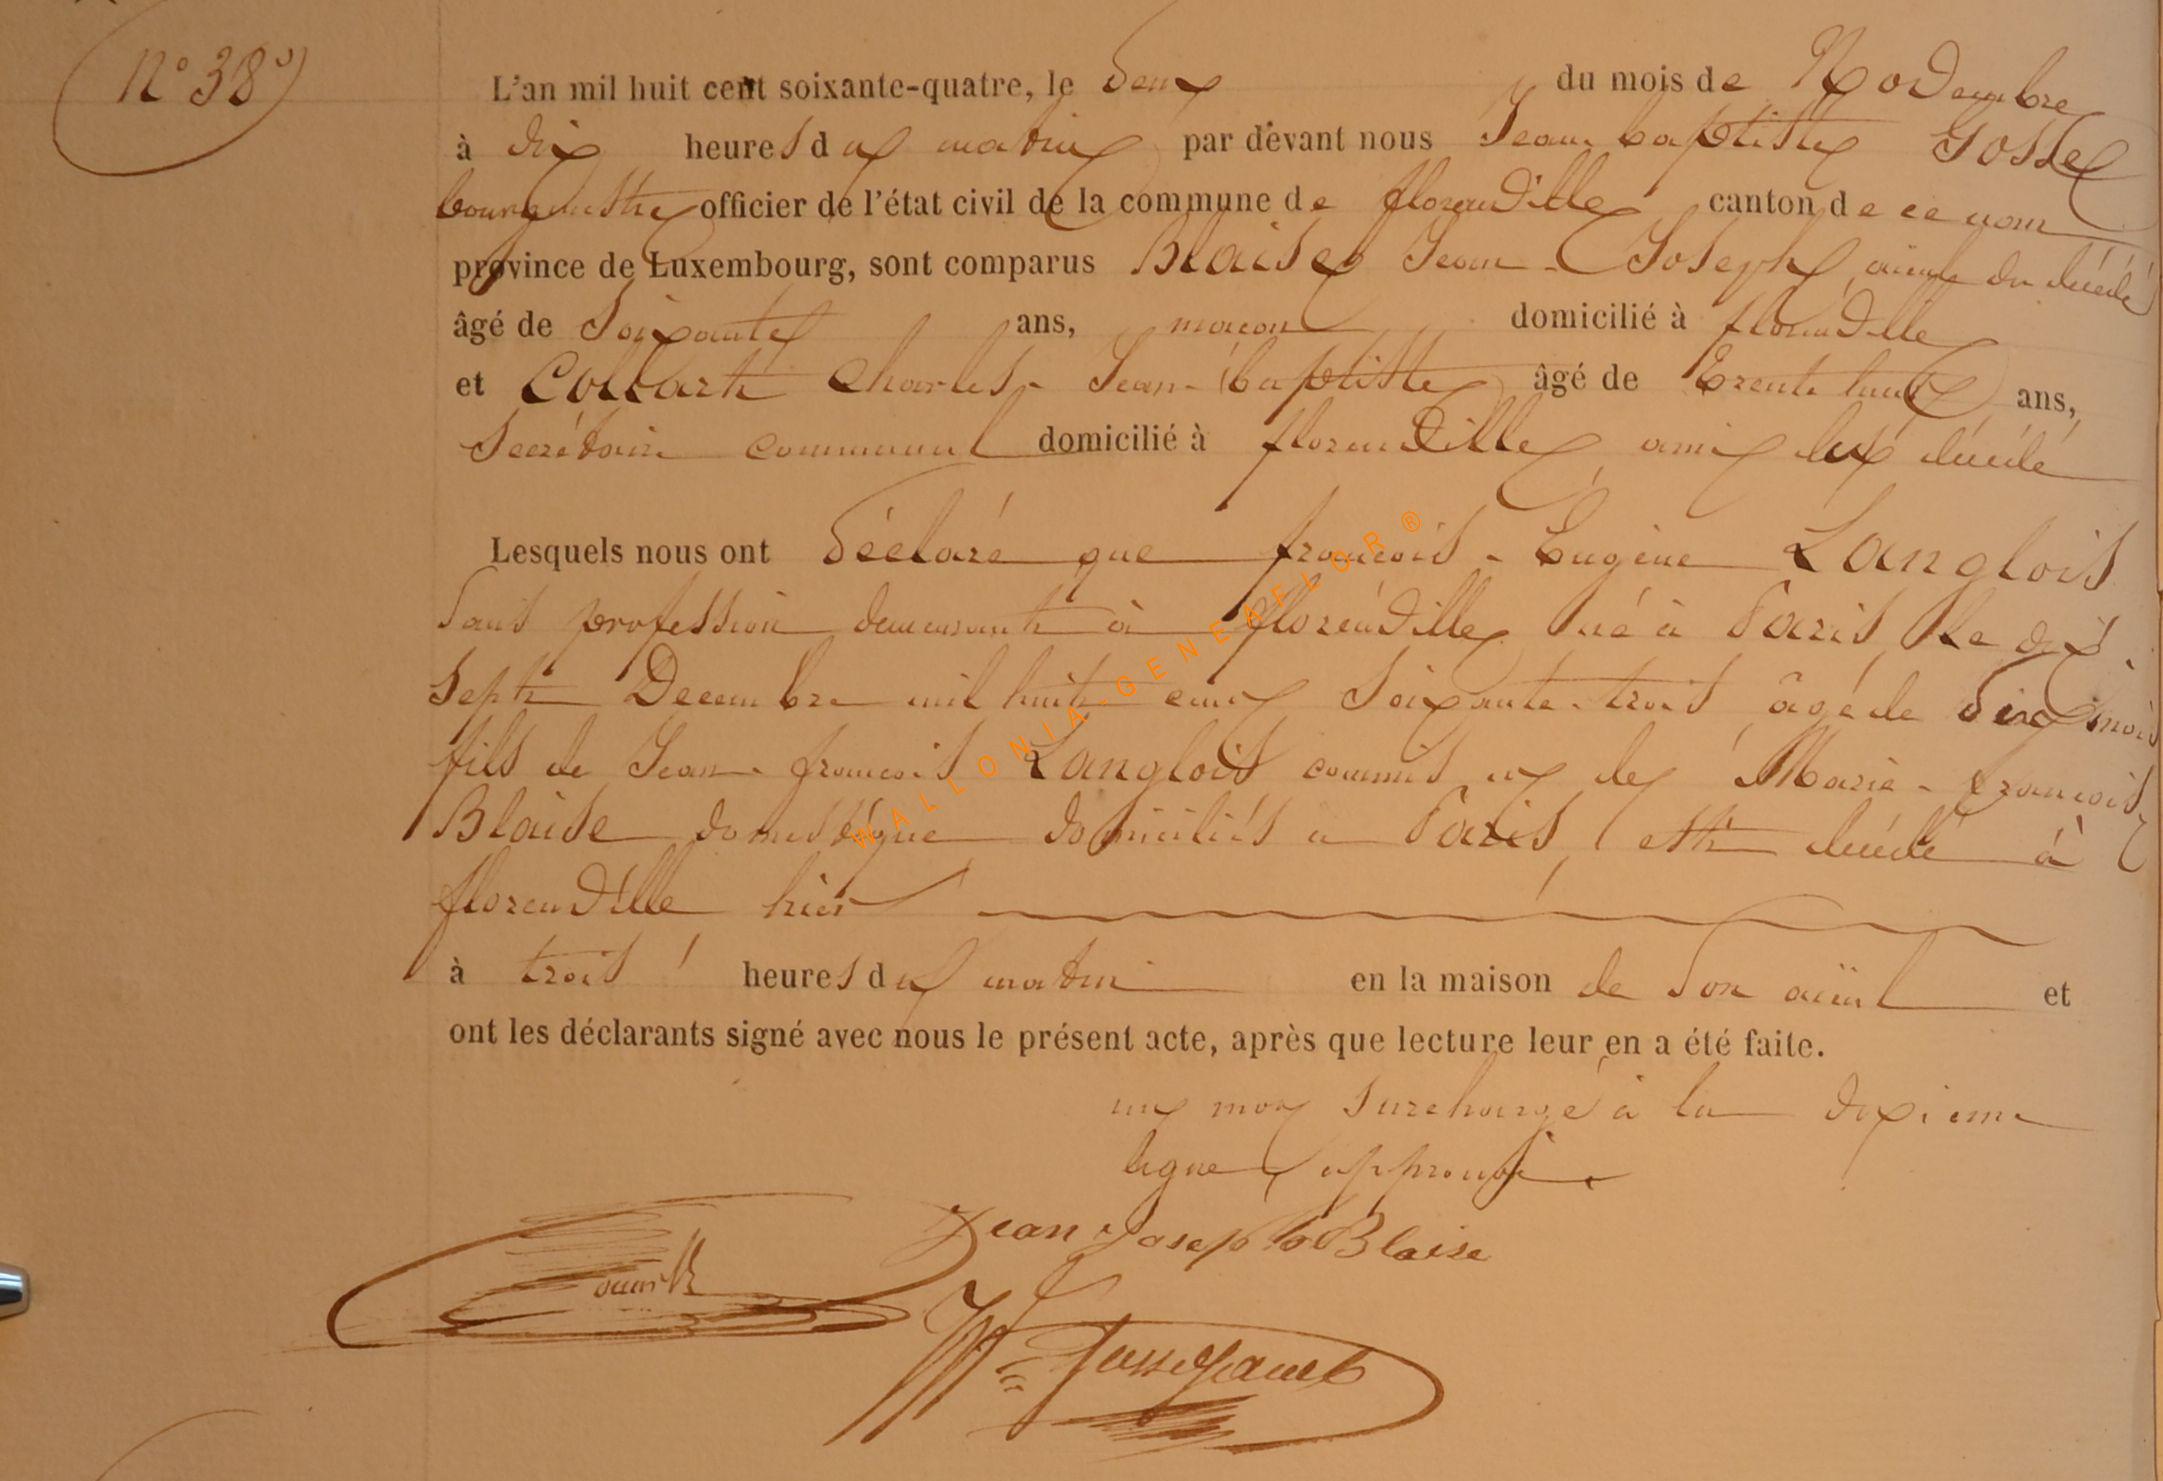 N° 38
L'an mil huit cent soixante-quatre, le deux du mois de Novembre
à dix heures du matin par devant nous Jean-baptiste Gosse
bourgmestre officier de l'état civil de la commune de florenville canton de ce nom
province de Luxembourg, sont comparus Blaise Jean-Joseph, aieule du décédé
âgé de Soixante ans, maçon domicilié à florenville
et Collart Charles-Jean-baptiste âgé de trente huit ans,
Secrétaire communal domicilié à florenville ami du décédé
Lesquels nous ont déclaré que françois-Eugène Langlois
Sans profession demeurant à florenville né à Paris le dix
Sept Decembre mil huit cent Soixante-trois âgé de dix mois
fils de Jean-françois Langlois commis et de Marie-françoise
Blaise domestique domiciliés à Paris, est décédé à
florenville hier
à trois heures du matin en la maison de Son aïeul et
ont les déclarants signé avec nous le présent acte, après que lecture leur en a été faite.
un mot Surchargé à la dixième
ligne approuvé.
Jean Joseph Blaise
WALLONIA-GENEAFLOR ®